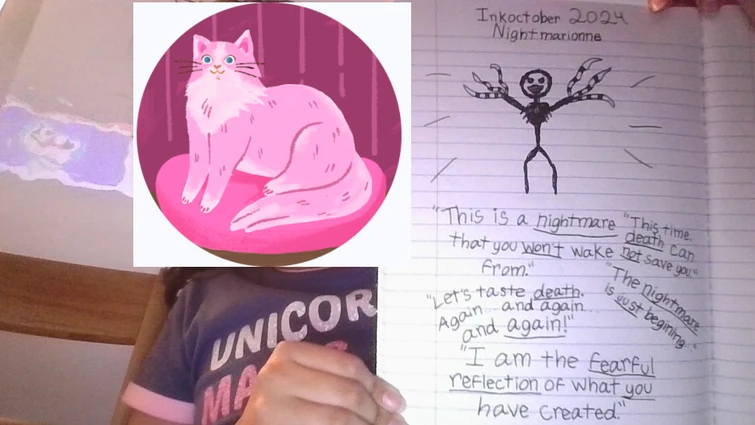 Inkoctober 2024
Nightmarionne
"This is a nightmare
that you won't wake
from."
"This time.
death can
not save you."
"Let's taste death.
Again... and again...
and again!"
"The nightmare
is just begining..."
"I am the fearful
reflection of what you
have created."
UNICOR
MA